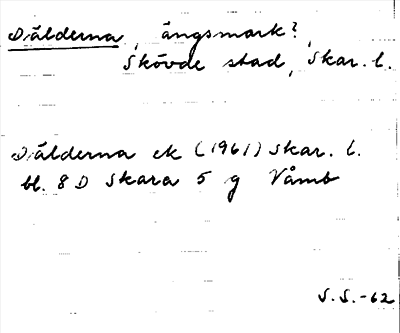 Dälderna, ängsmark?,
Skövde stad, Skar. l.
Dälderna ek (1961) Skar. l.
bl. 8 D Skara 5 g Våmb
S.S.-62